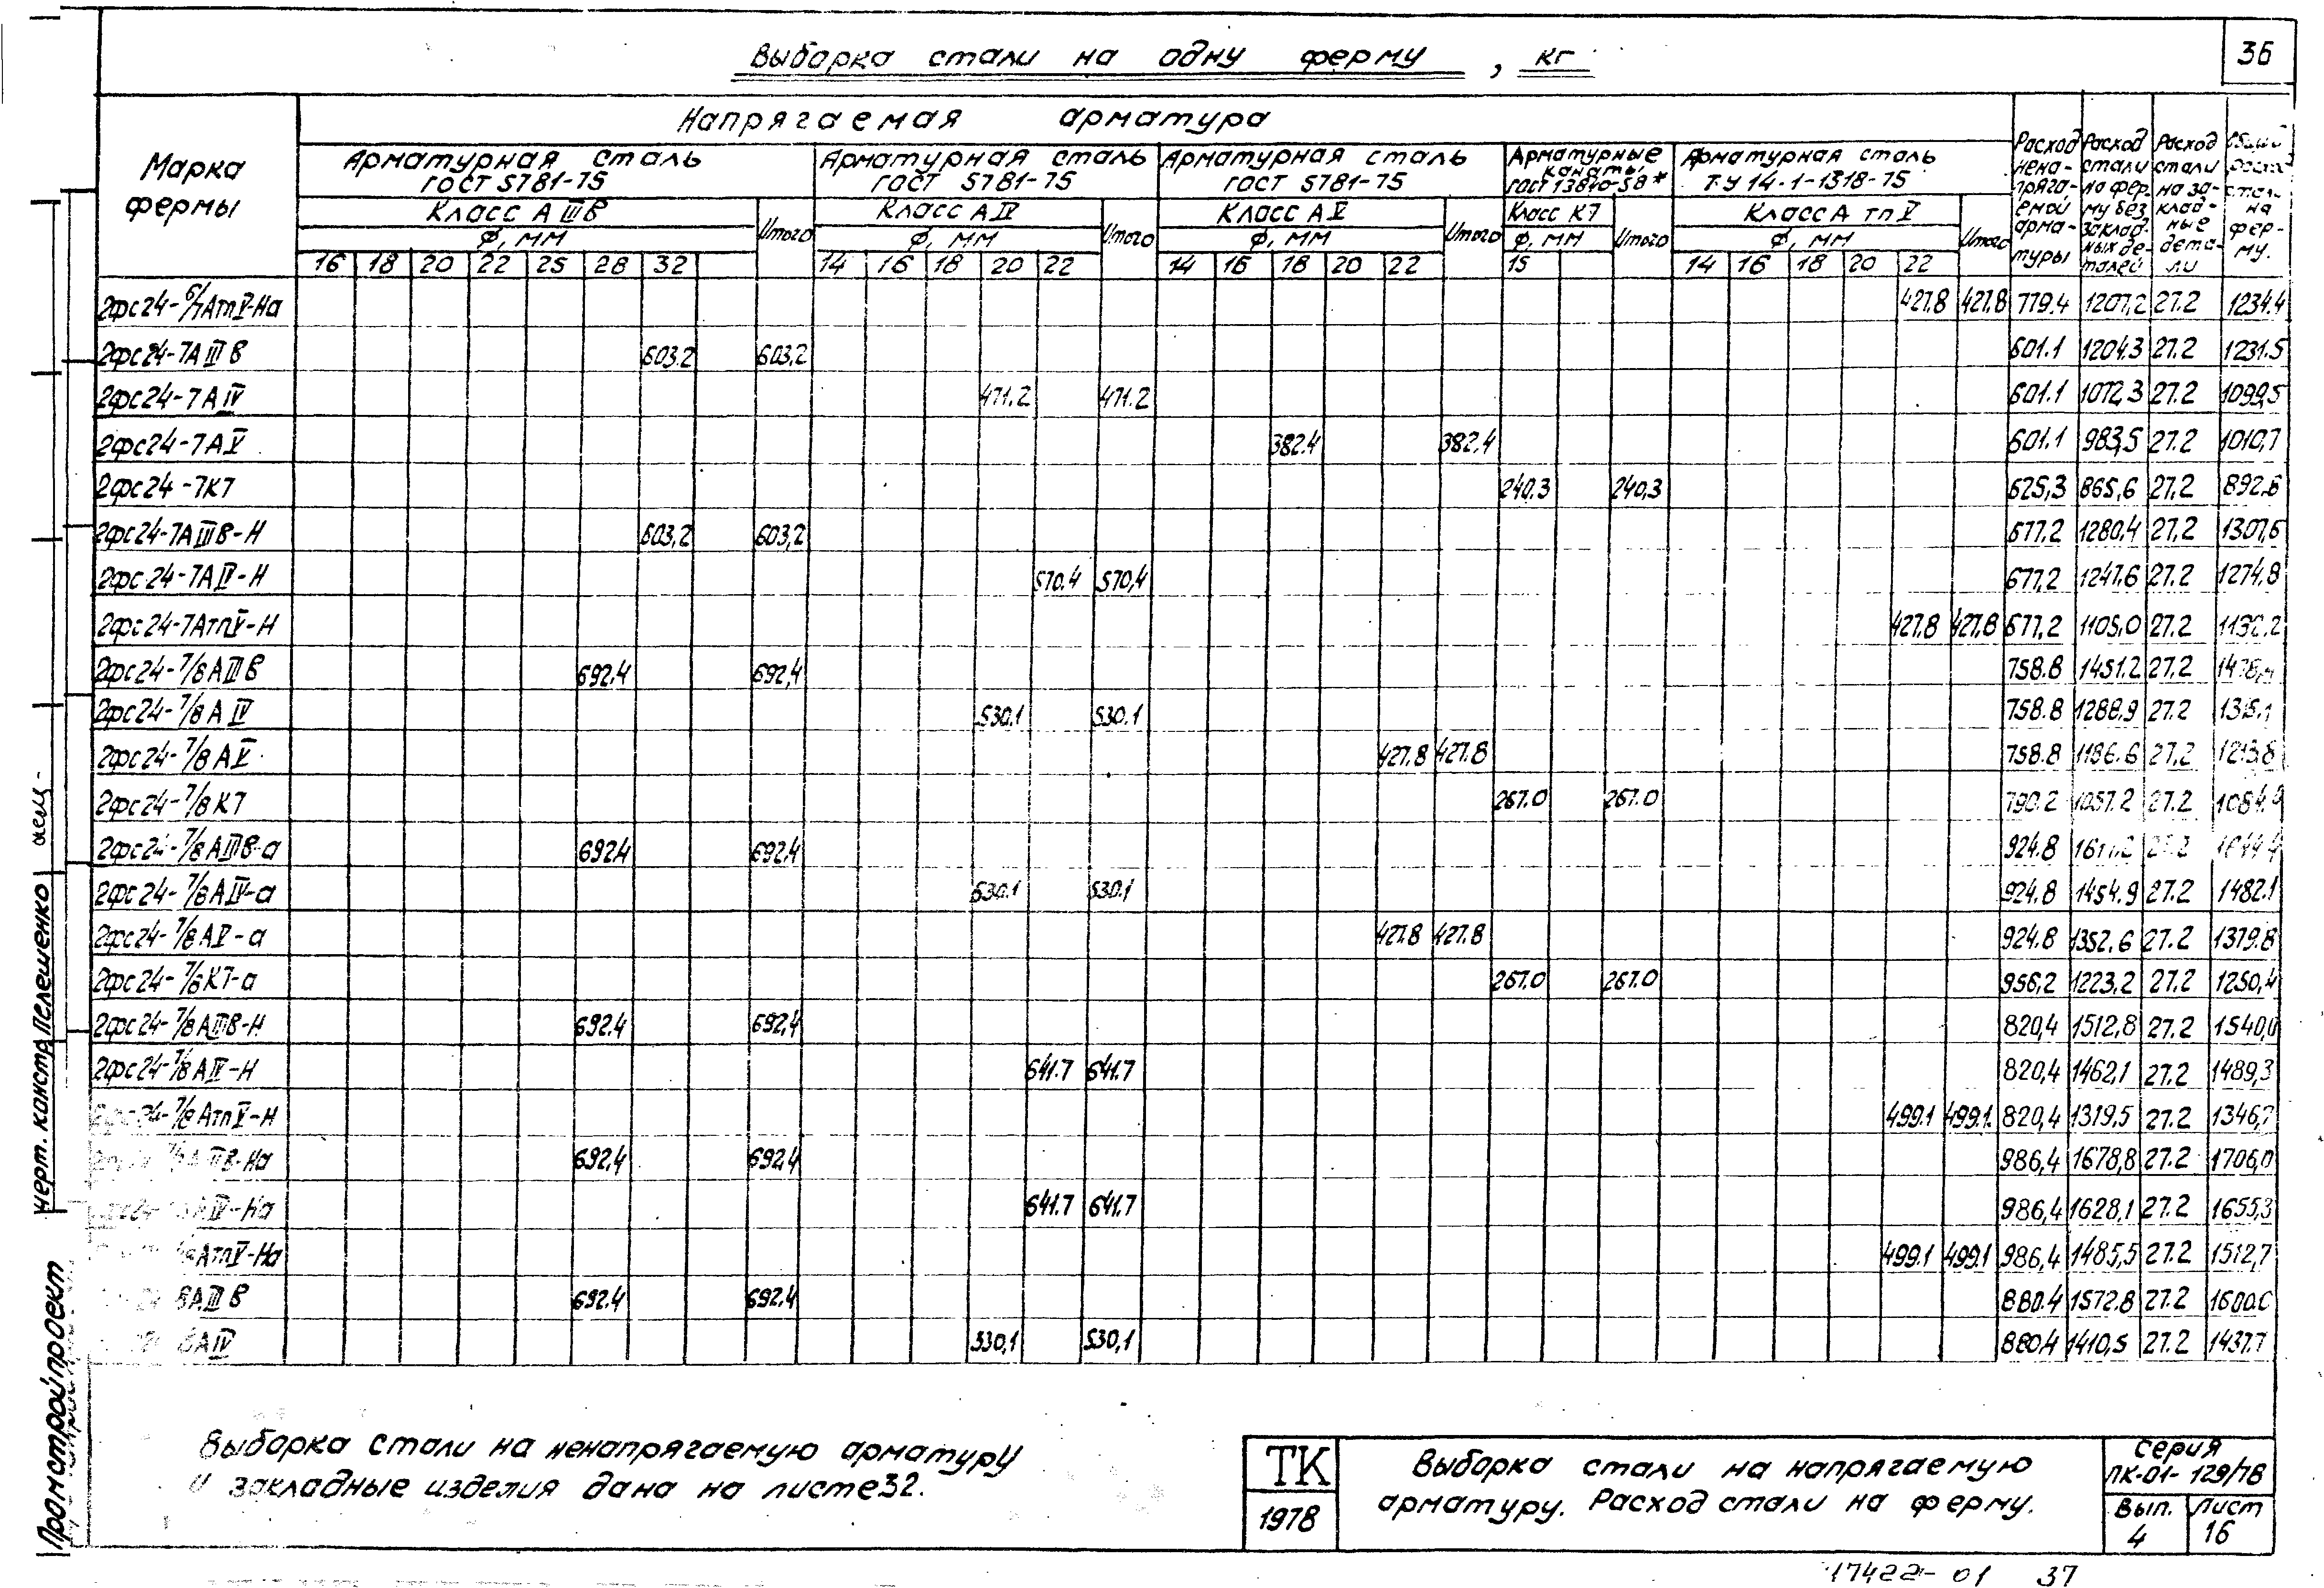 36
Выборка стали на одну ферму, кг
Марка фермы
Напрягаемая арматура
Арматурная сталь ГОСТ 5781-75
Арматурная сталь ГОСТ 5781-75
Арматурная сталь ГОСТ 5781-75
Арматурные канаты ГОСТ 13840-58*
Арматурная сталь ТУ 14-1-1318-75
Расход ненапрягаемой арматуры
Расход стали на ферму без закладных деталей
Расход стали на закладные детали
на ферму.
Класс А III В Итого Класс А IV Итого Класс А V Итого Класс К7 Итого Класс А тп V Итого
Ф, мм Ф, мм Ф, мм Ф, мм Ф, мм
16 18 20 22 25 28 32 14 16 18 20 22 14 16 18 20 22 15 14 16 18 20 22
2фс24-6/7АтпV-На 427.8 427.8 779.4 1207,2 27.2 1234.4
2фс24-7А III В 603.2 603,2 601.1 1204.3 27.2 1231.5
2фс24-7А IV 471.2 471.2 601.1 1072,3 27.2 1099,5
2фс24-7А V 382.4 382.4 601.1 983,5 27.2 1010,7
2фс24-7К7 240.3 240,3 625,3 865,6 27,2 892.8
2фс24-7А III В-Н 603,2 603,2 677,2 1280,4 27,2 1307,6
2фс24-7А IV-Н 570.4 570,4 677,2 1247.6 27.2 1274,8
2фс24-7АтпV-Н 427.8 427,8 677,2 1105,0 27.2 1132.2
2фс24-7/8А III В 692.4 692,4 758.8 1451.2 27,2
2фс24-7/8А IV 530.1 530.1 758.8 1288.9 27.2
2фс24-7/8А V 427.8 427.8 758.8 1186.6 27,2 1213,8
2фс24-7/8К7 267.0 267.0 790.2 1057.2 27.2 1084.4
2фс24-7/8А III В-а 692.4 692.4 924.8
2фс24-7/8А IV-а 530.1 530.1 924.8 1454.9 27.2 1482.1
2фс24-7/8А V-а 427.8 427.8 924.8 1352.6 27.2 1379.8
2фс24-7/8К7-а 267.0 267.0 956,2 1223,2 27.2 1250,4
2фс24-7/8А III В-Н 692.4 692,4 820,4 1512,8 27.2 1540,0
2фс24-7/8А IV-Н 641.7 641.7 820,4 1462,1 27.2 1489,3
2фс24-7/8АтпV-Н 499.1 499.1 820,4 1319,5 27.2 1346,7
А III В-На 692,4 692,4 986,4 1678,8 27.2 1706,0
А IV-На 641.7 641.7 986,4 1628,1 27.2 1655,3
АтпV-На 499.1 499.1 986,4 1485,5 27.2 1512,7
8А III В 692.4 692.4 880.4 1572.8 27.2 1600.0
8А IV 530,1 530,1 880.4 1410,5 27.2 1437.7
Выборка стали на ненапрягаемую арматуру
и закладные изделия дана на листе 32.
ТК
1978
Выборка стали на напрягаемую
арматуру. Расход стали на ферму.
Серия
ПК-01-129/78
Вып. 4
Лист 16
17422-01 37
Промстройпроект